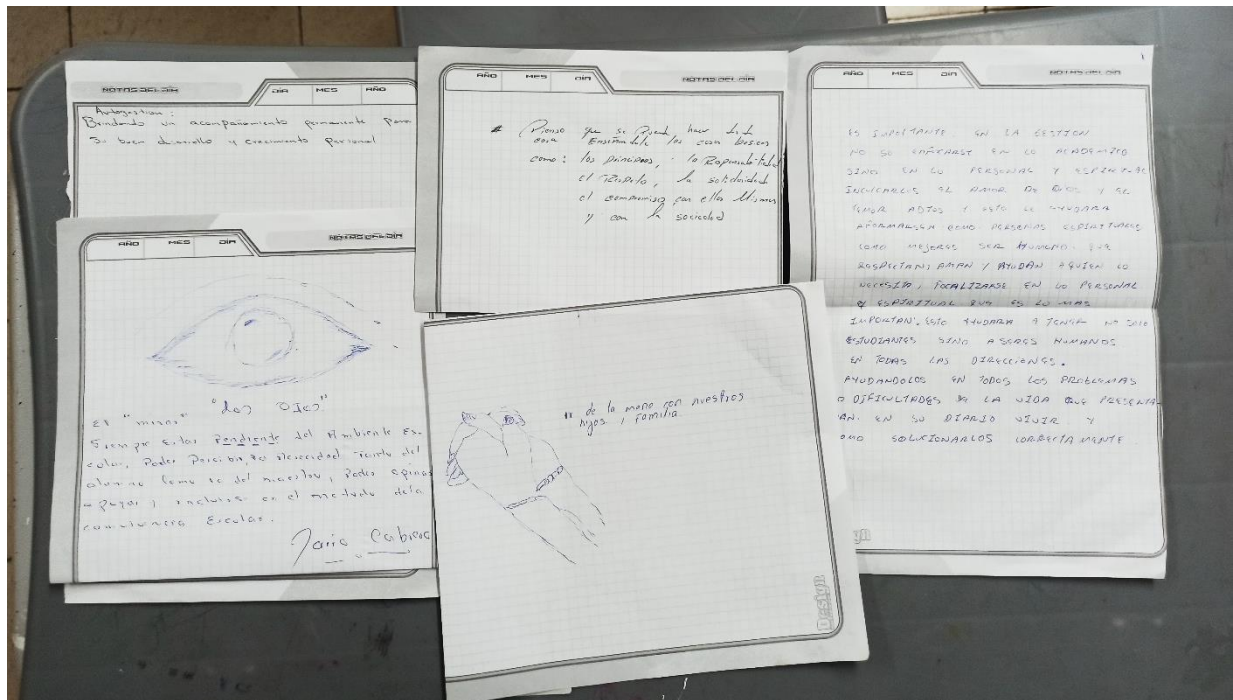 NOTAS DEL DÍA
DÍA MES AÑO
Autogestion:
Brindando un acompañamiento permanente para
su buen desarrollo y crecimiento personal
AÑO MES DÍA
NOTAS DEL DÍA
"Los Ojos"
El "mirar"
Siempre Estar Pendiente del Ambiente Es-
colar, Poder Percibir, la necesidad Tanto del
alumno como la del maestro, Poder opinar
y incluirse en el mundo de la
convivencia Escolar.
Cabrera
AÑO MES DÍA
NOTAS DEL DÍA
* Pienso que se Puede hacer
cosa Enseñandole las cosa basicas
como: los principios, la Responsabilidad
el Respeto, la solidaridad
el compromiso con ellos Mismos
y con la sociedad
" de la mano con nuestros
hijos y familia.
Design
AÑO MES DÍA
NOTAS DEL DÍA
ES IMPORTANTE EN LA GESTION
NO SE EN LO ACADEMICO
SINO EN LO PERSONAL Y ESPIRITUAL
INCULCARLES EL AMOR DE DIOS Y EL
TEMOR ADIOS Y ESTO LE AYUDARA
AFORMALSEN COMO PERSONAS ESPIRITUALES
COMO MEJORES SER HUMANO. QUE
RESPECTAN, AMAN Y AYUDAN AQUIEN LO
NECESITA, FOCALIZARSE EN LO PERSONAL
Y ESPIRITUAL QUE ES LO MAS
IMPORTAN. ESTO AYUDARA A TENER NO SOLO
ESTUDIANTES SINO A SERES HUMANOS
EN TODAS LAS DIRECCIONES.
AYUDANDOLOS EN TODOS LOS PROBLEMAS
O DIFICULTADES DE LA VIDA QUE PRESENTA-
AN. EN SU DIARIO VIVIR Y
OMO SOLUCIONARLOS CORRECTAMENTE